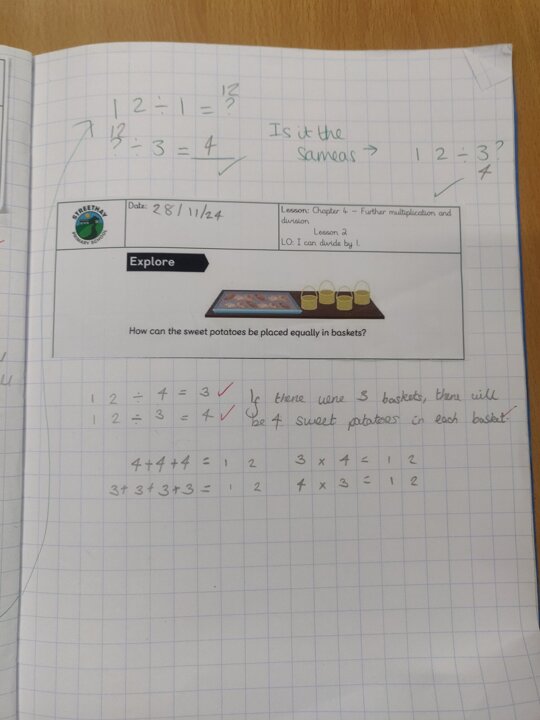 12
1 2 ÷ 1 = ?
12
? ÷ 3 = 4
Is it the
same as → 1 2 ÷ 3?
4
STREETHAY
PRIMARY SCHOOL
Date: 28/11/24
Lesson: Chapter 4 – Further multiplication and
division
Lesson 2
LO: I can divide by 1.
Explore
How can the sweet potatoes be placed equally in baskets?
1 2 ÷ 4 = 3 ✓ If there were 3 baskets, there will
1 2 ÷ 3 = 4 ✓ be 4 sweet potatoes in each basket.
4+4+4 = 1 2 3 × 4 = 1 2
3+3+3+3 = 1 2 4 × 3 = 1 2